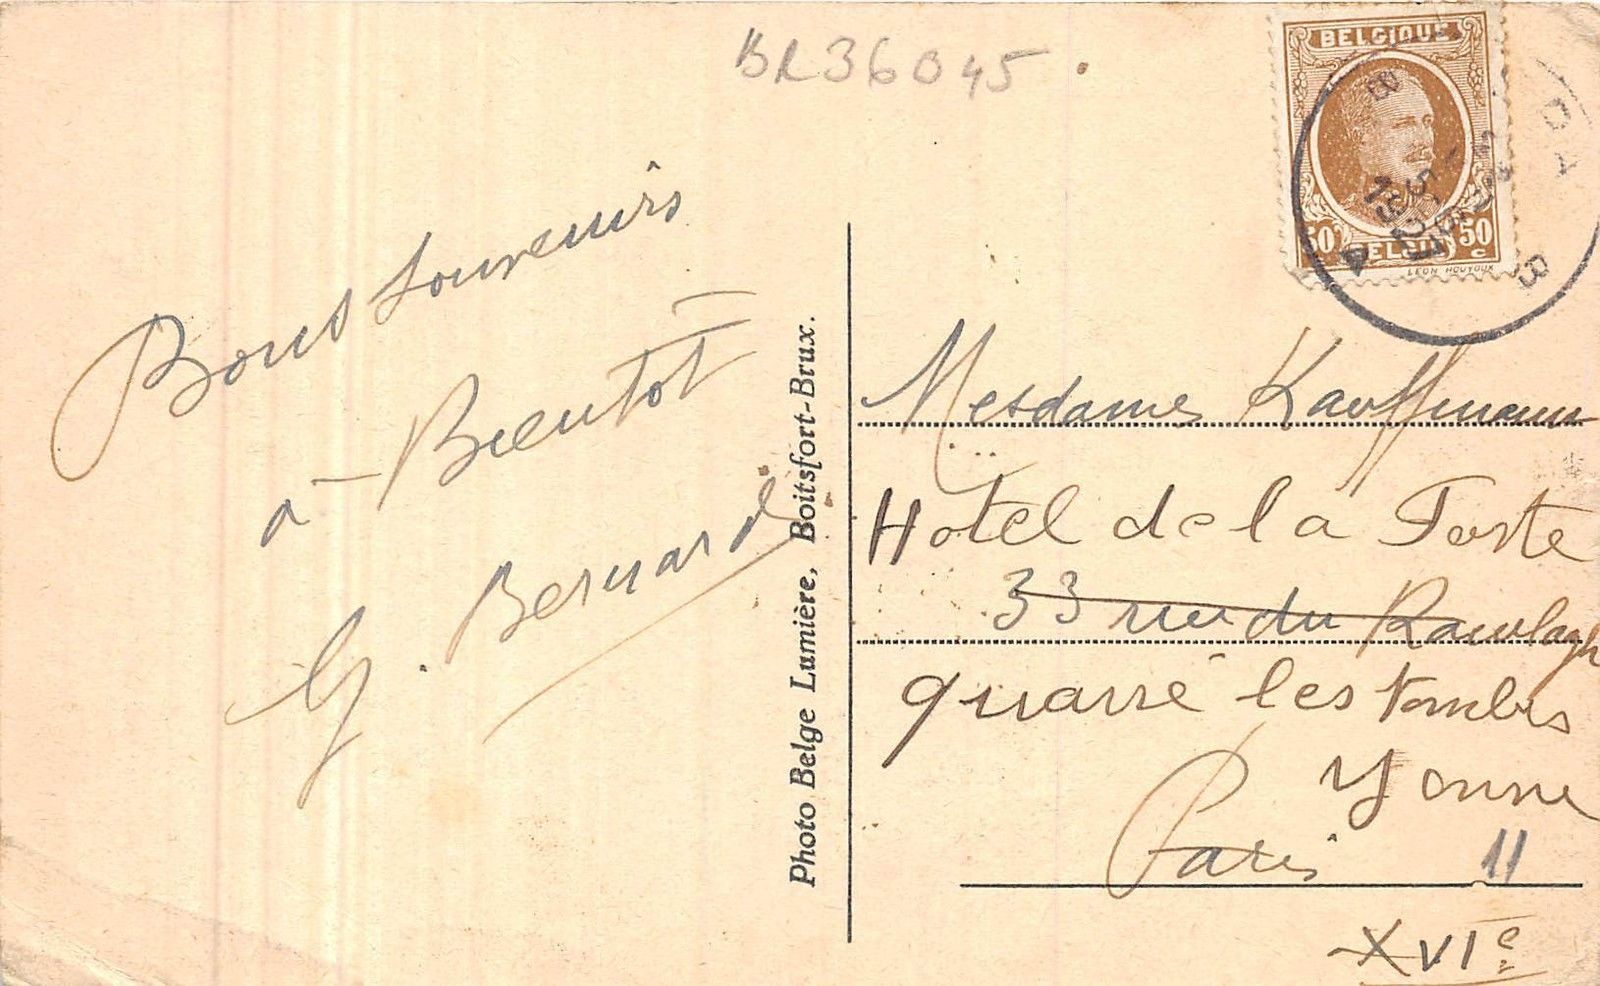 BR36045
BELGIQUE
50 BELGIË 50
c
LEON HOUYOUX
Bons souvenirs
à Bientôt
G. Bernard
Photo Belge Lumière, Boitsfort-Brux.
Mesdames Kauffmann
Hotel de la Poste
33 rue du Ranelagh
quarré les tombes
Yonne
Paris 11
XVIe